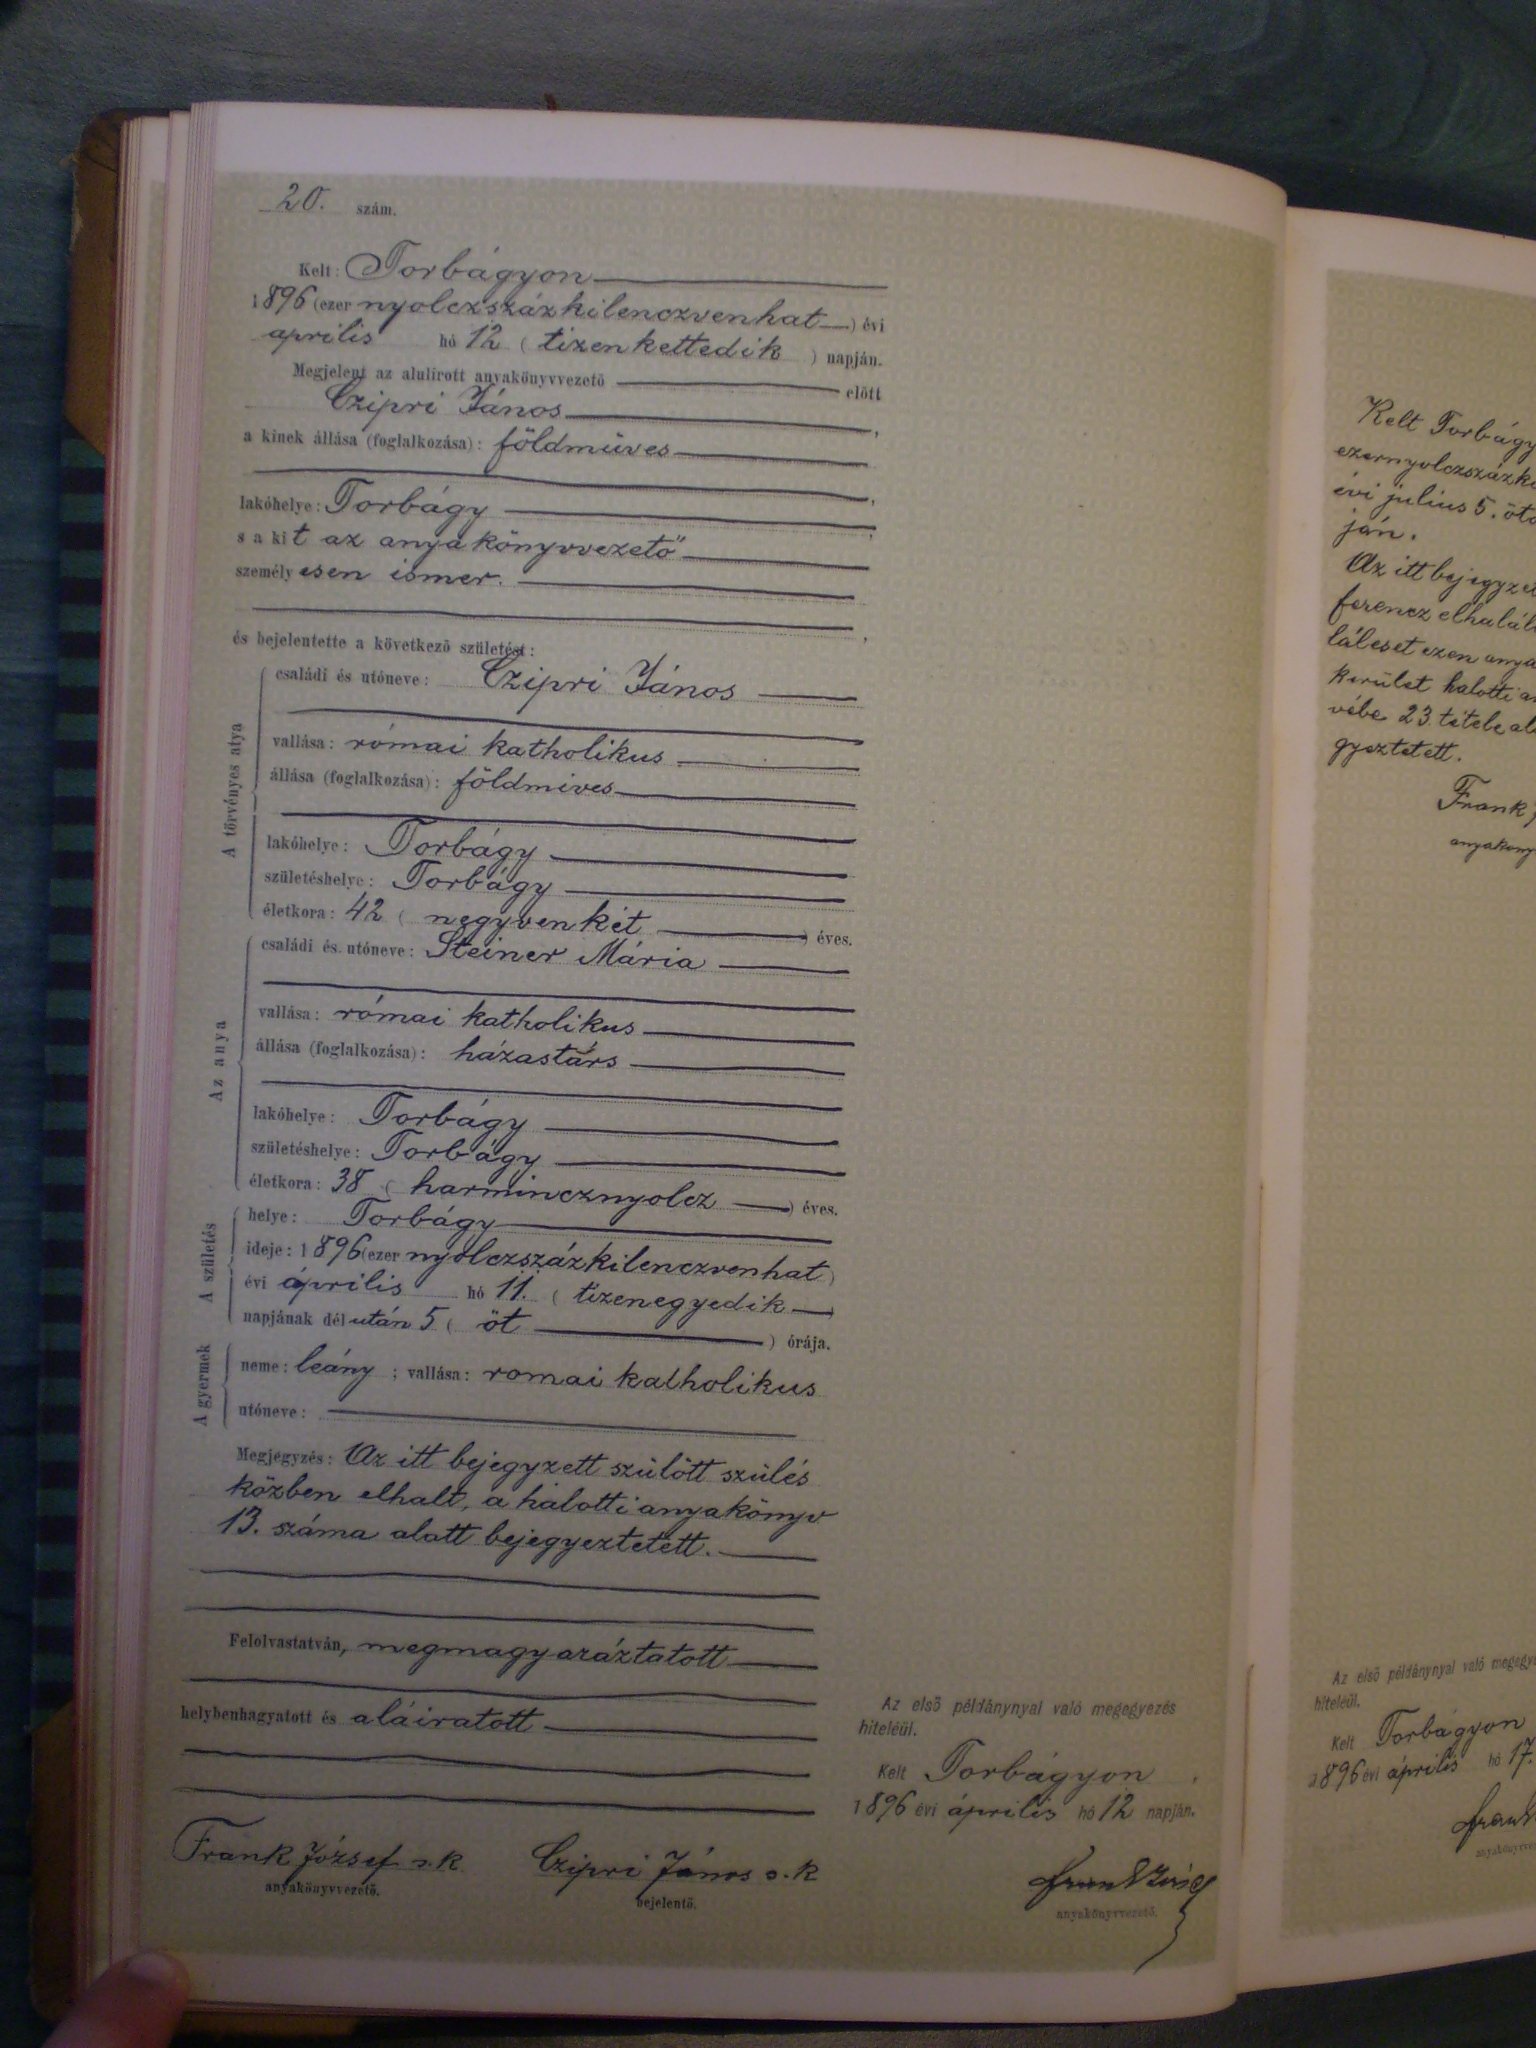 20. szám.
Kelt: Torbágyon
1896 (ezer nyolczszázkilenczvenhat) évi
aprilis hó 12 (tizenkettedik) napján.
Megjelent az alulirott anyakönyvvezető előtt
Czipri János,
a kinek állása (foglalkozása): földmüves
,
lakóhelye: Torbágy,
s a kit az anyakönyvvezető
személyesen ismer.
,
és bejelentette a következő születést:
A törvényes atya
családi és utóneve: Czipri János
vallása: római katholikus
állása (foglalkozása): földmives
lakóhelye: Torbágy
születéshelye: Torbágy
életkora: 42 (negyvenkét) éves.
Az anya
családi és utóneve: Steiner Mária
vallása: római katholikus
állása (foglalkozása): házastárs
lakóhelye: Torbágy
születéshelye: Torbágy
életkora: 38 (harmincznyolcz) éves.
A születés
helye: Torbágy
ideje: 1896 (ezer nyolczszázkilenczvenhat)
évi április hó 11. (tizenegyedik)
napjának délután 5 (öt) órája.
A gyermek
neme: leány; vallása: romai katholikus
utóneve:
Megjegyzés: Az itt bejegyzett szülött szülés
közben elhalt, a halotti anyakönyv
13. száma alatt bejegyeztetett.
Felolvastatván, megmagyaráztatott
helybenhagyatott és aláiratott
Frank József s.k Czipri János s.k
anyakönyvvezető. bejelentő.
Az első példánynyal való megegyezés
hiteléül.
Kelt Torbágyon,
1896 évi április hó 12 napján.
Frank József
anyakönyvvezető.
Kelt Torbágy
ezernyolczszázki
évi julius 5. ötö
ján.
Az itt bejegyze
ferencz elhalálo
láleset ezen anya
kerület halotti an
vébe 23. tétele al
gyeztetett.
Frank J
anyakönyv
Az első példánynyal való megegye
hiteléül.
Kelt Torbágyon
1896 évi április hó 17.
Frank
anyakönyvve